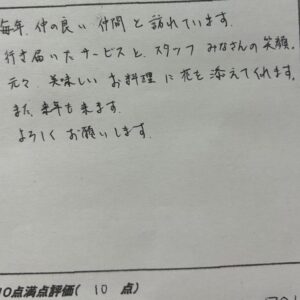 毎年、仲の良い仲間と訪れています。
行き届いたサービスと、スタッフみなさんの笑顔。
元々美味しいお料理に花を添えてくれます。
また、来年も来ます。
よろしくお願いします。
10点満点評価( 10 点)